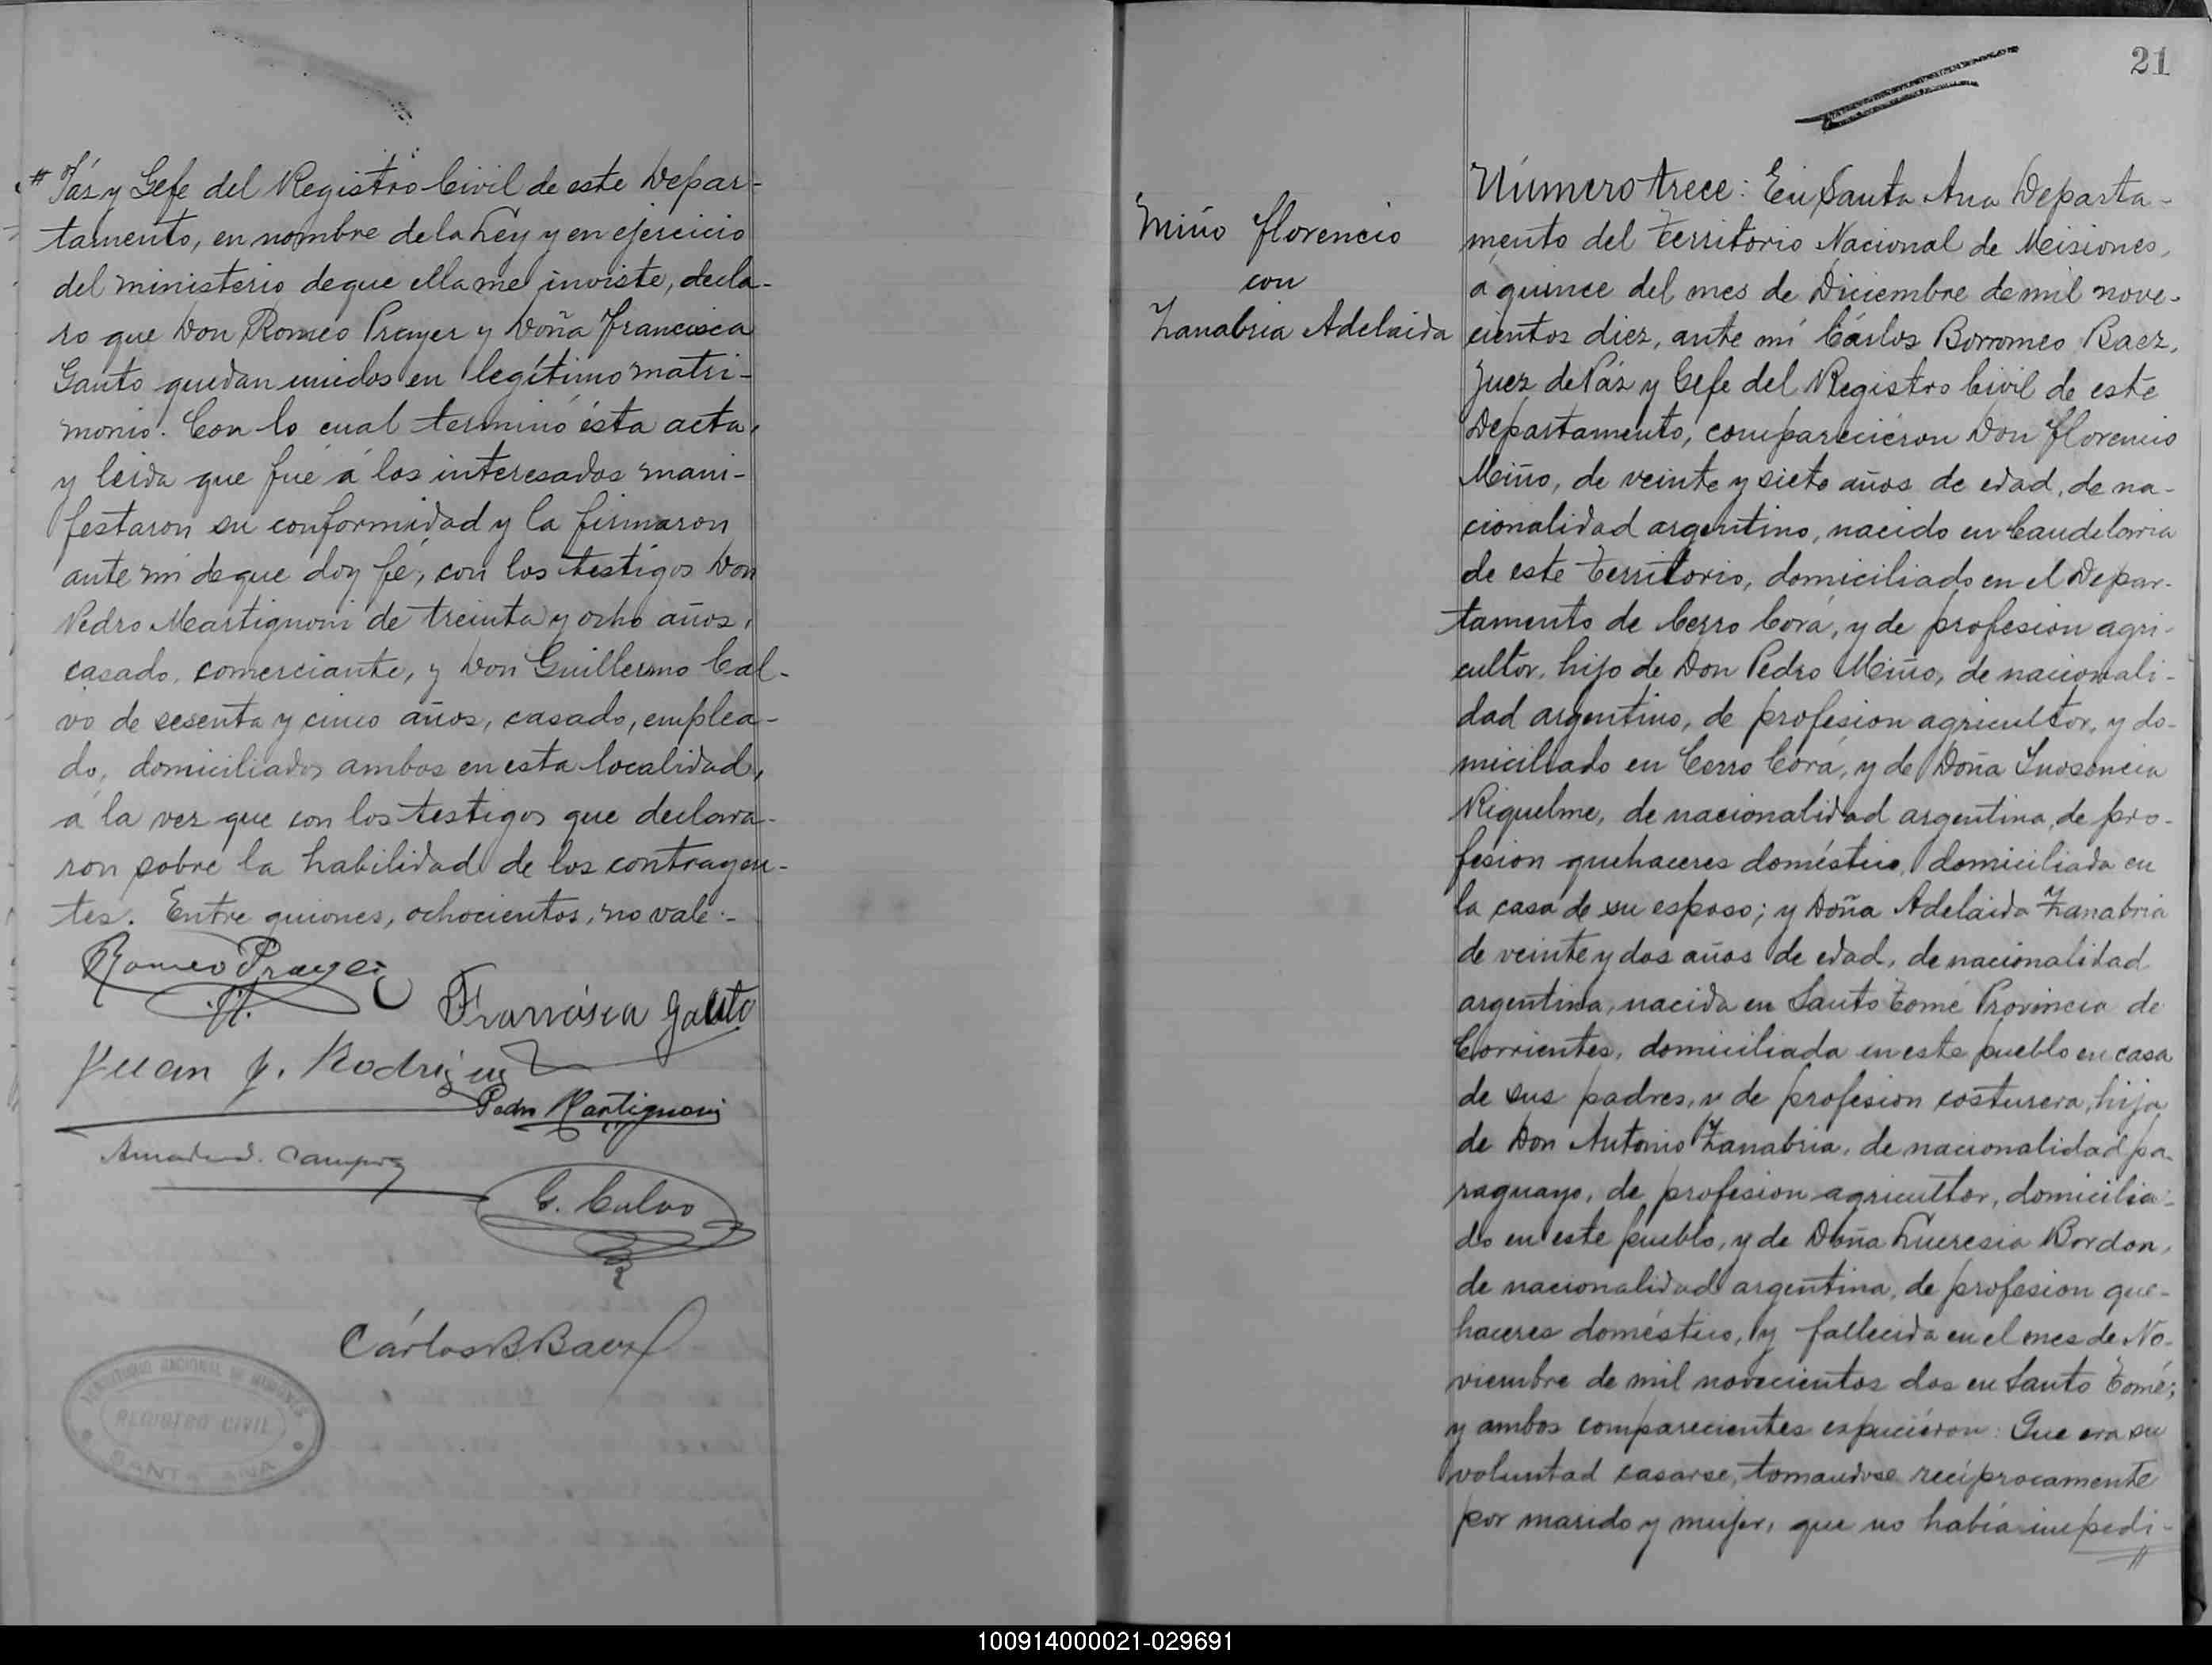 # Páz y Gefe del Registro Civil de este Depar-
tamento, en nombre de la Ley y en ejercicio
del ministerio de que ella me inviste, decla-
ro que Don Romeo Prayer y Doña Francisca
Gauto quedan unidos en legítimo matri-
monio. Con lo cual terminó ésta acta,
y leida que fué á los interesados mani-
festaron su conformidad y la firmaron
ante mí de que doy fé, con los testigos Don
Pedro Martignoni de treinta y ocho años,
casado, comerciante, y Don Guillermo Cal-
vo de sesenta y cinco años, casado, emplea-
do, domiciliados ambos en esta localidad,
á la vez que con los testigos que declara-
ron sobre la habilidad de los contrayen-
tes. Entre guiones, ochocientos, no vale.-
Romeo Prayer
Francisca Gauto
Juan J. Rodriguez
Pedro Martignoni
G. Calvo
Cárlos B. Baez
TERRITORIO NACIONAL DE MISIONES
REGISTRO CIVIL
SANTA ANA
21
Miño Florencio
con
Zanabria Adelaida
Número trece: En Santa Ana Departa-
mento del Territorio Nacional de Misiones,
á quince del mes de Diciembre de mil nove-
cientos diez, ante mí Cárlos Borromeo Baez,
Juez de Páz y Gefe del Registro Civil de este
Departamento, compareciéron Don Florencio
Miño, de veinte y siete años de edad, de na-
cionalidad argentino, nacido en Candelaria
de este Territorio, domiciliado en el Depar-
tamento de Cerro Corá, y de profesion agri-
cultor, hijo de Don Pedro Miño, de nacionali-
dad argentino, de profesion agricultor, y do-
miciliado en Cerro Corá, y de Doña Inosencia
Riquelme, de nacionalidad argentina, de pro-
fesion quehaceres doméstico, domiciliada en
la casa de su esposo; y Doña Adelaida Zanabria
de veinte y dos años de edad, de nacionalidad
argentina, nacida en Santo Tomé Provincia de
Corrientes, domiciliada en este pueblo en casa
de sus padres, y de profesion costurera, hija
de Don Antonio Zanabria, de nacionalidad pa-
raguayo, de profesion agricultor, domicilia-
do en este pueblo, y de Doña Lucresia Bordon,
de nacionalidad argentina, de profesion que-
haceres doméstico, y fallecida en el mes de No-
viembre de mil novecientos dos en Santo Tomé;
y ambos comparecientes espuciéron: Que era su
voluntad casarse, tomandose recíprocamente
por marido y mujer, que no había impedi-
100914000021-029691